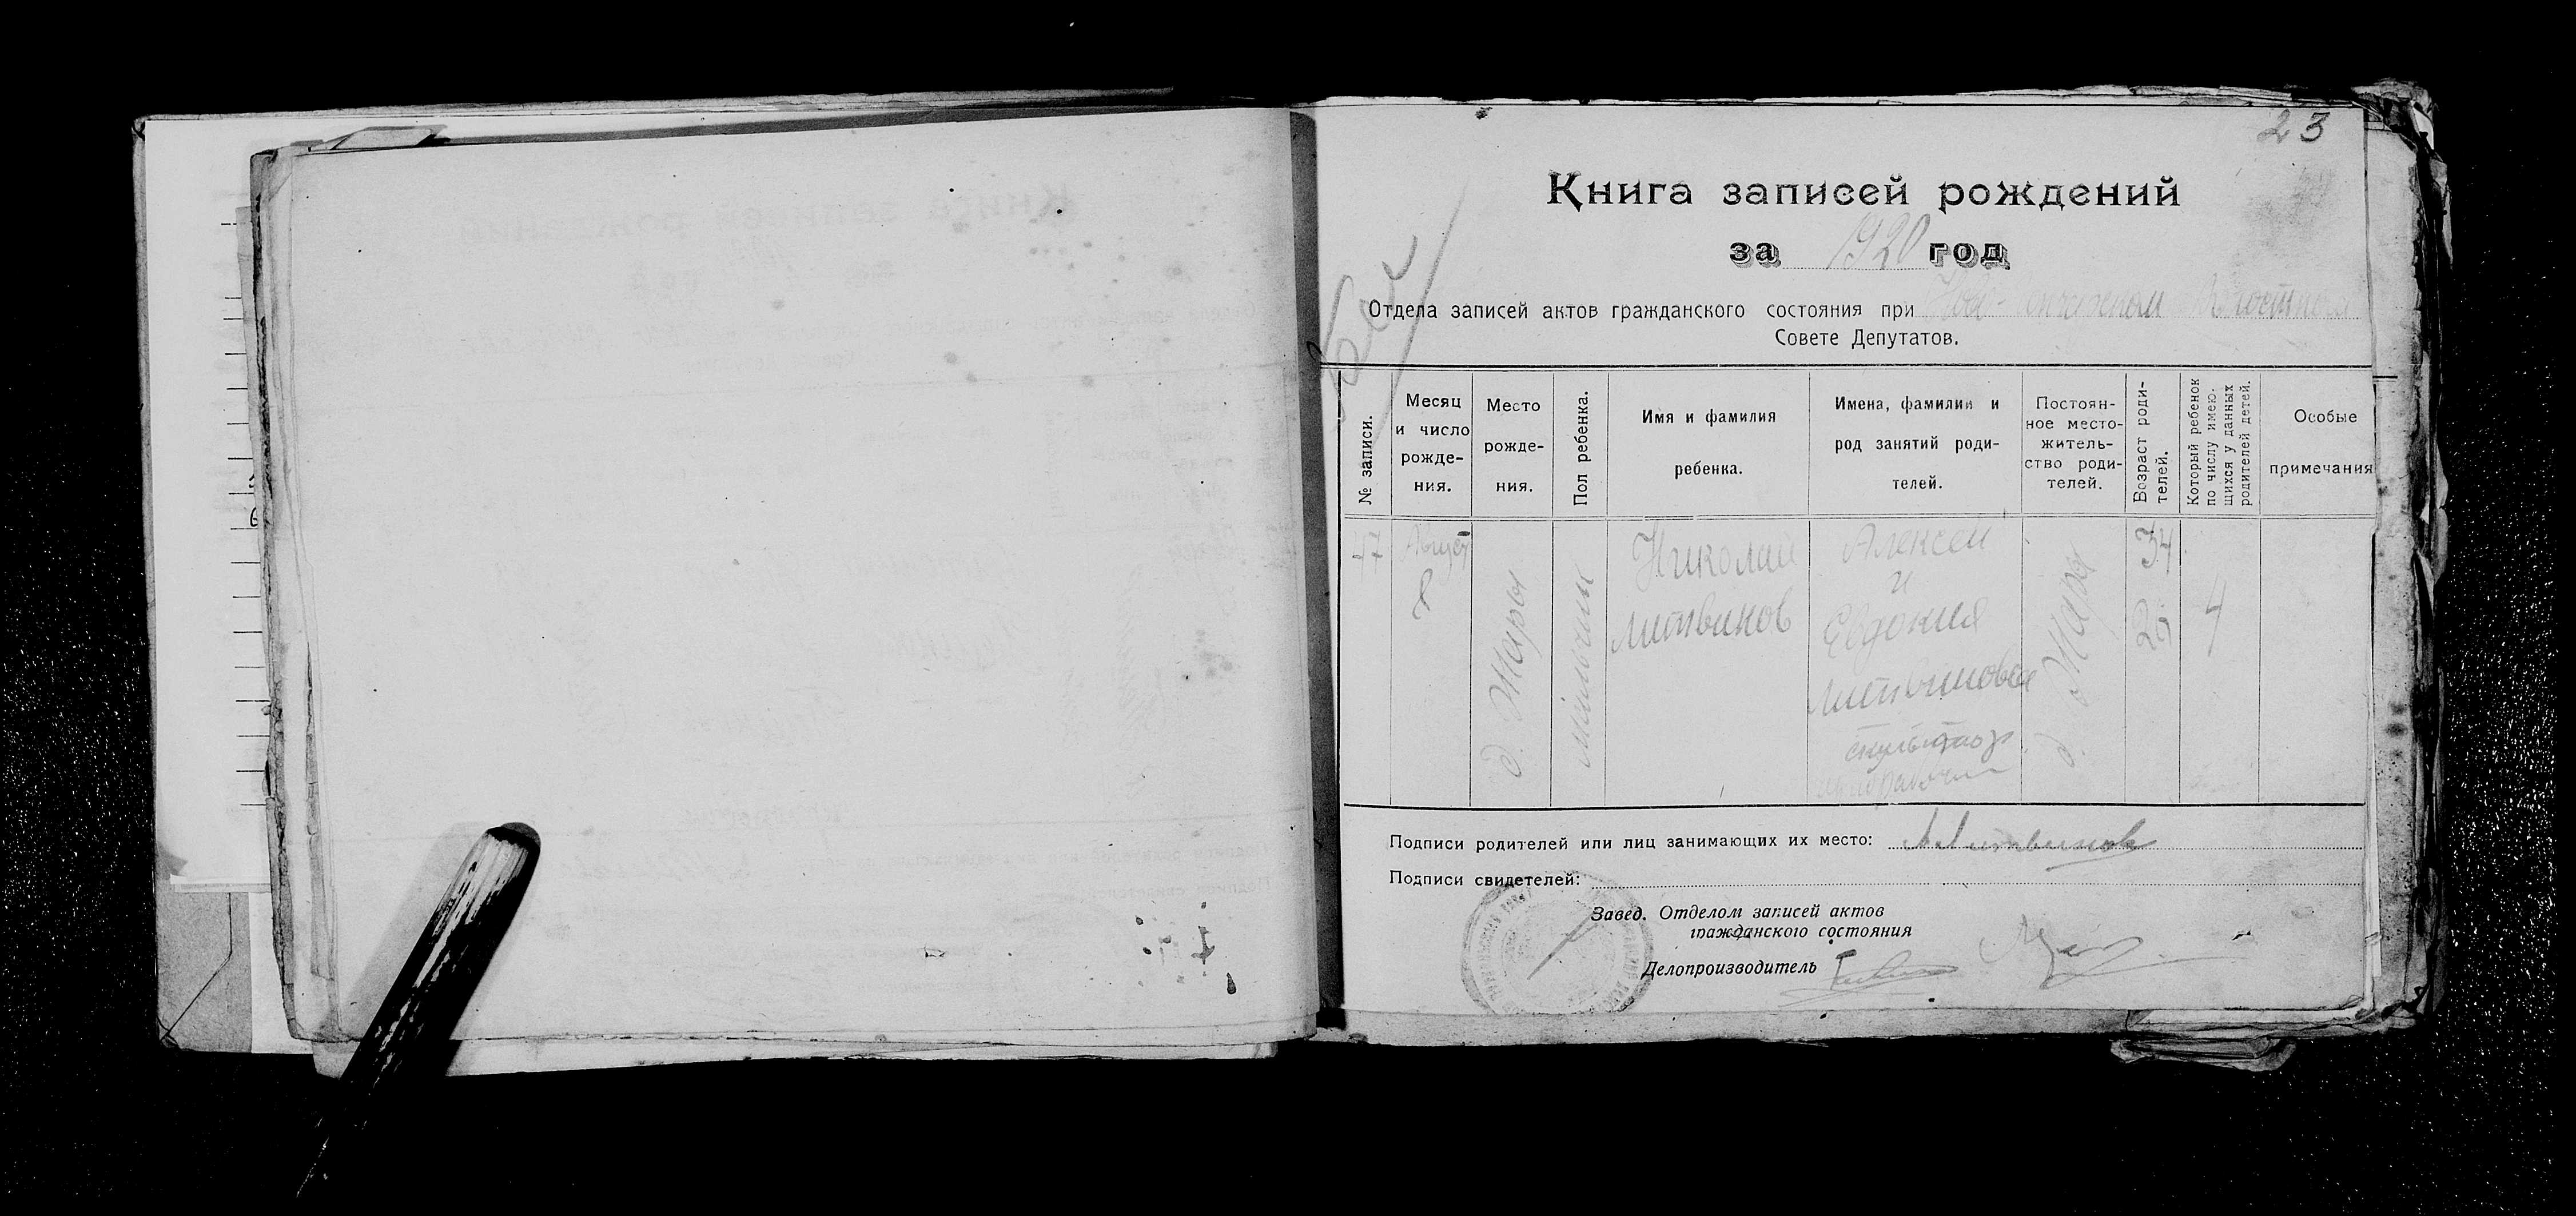 23
Книга записей рождений
за 1920 год
Отдела записей актов гражданского состояния при
Совете Депутатов.
№ записи.
Месяц
и число
рожде-
ния.
Место
рожде-
ния.
Пол ребенка.
Имя и фамилия
ребенка.
Имена, фамилии и
род занятий роди-
телей.
Постоян-
ное место-
житель-
ство роди-
телей.
Возраст роди-
телей.
Который ребенок
по числу имею-
щихся у данных
родителей детей.
Особые
примечания
47
Август
8
д. Жары
мальчик
Николай
Литвинов
Алексей
и
Евдокия
Литвиновы
д. Жары
34
29
4
Подписи родителей или лиц занимающих их место: А Литвинов
Подписи свидетелей:
Завед. Отделом записей актов
гражданского состояния
Делопроизводитель